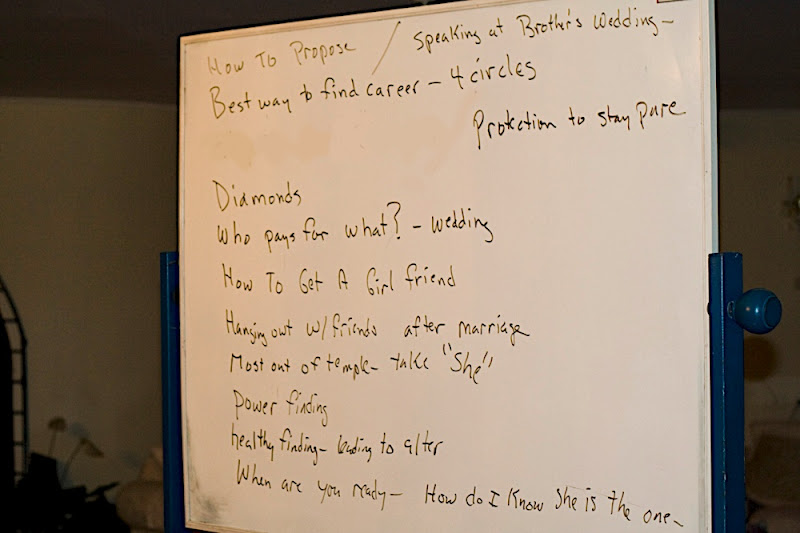 How To Propose / Speaking at Brother's Wedding -
Best way to find career - 4 circles
Protection to stay pure
Diamonds
Who pays for what? - wedding
How To Get A Girl friend
Hanging out w/friends after marriage
Most out of temple - take "She"
power finding
healthy finding - leading to alter
When are you ready - How do I know She is the one -